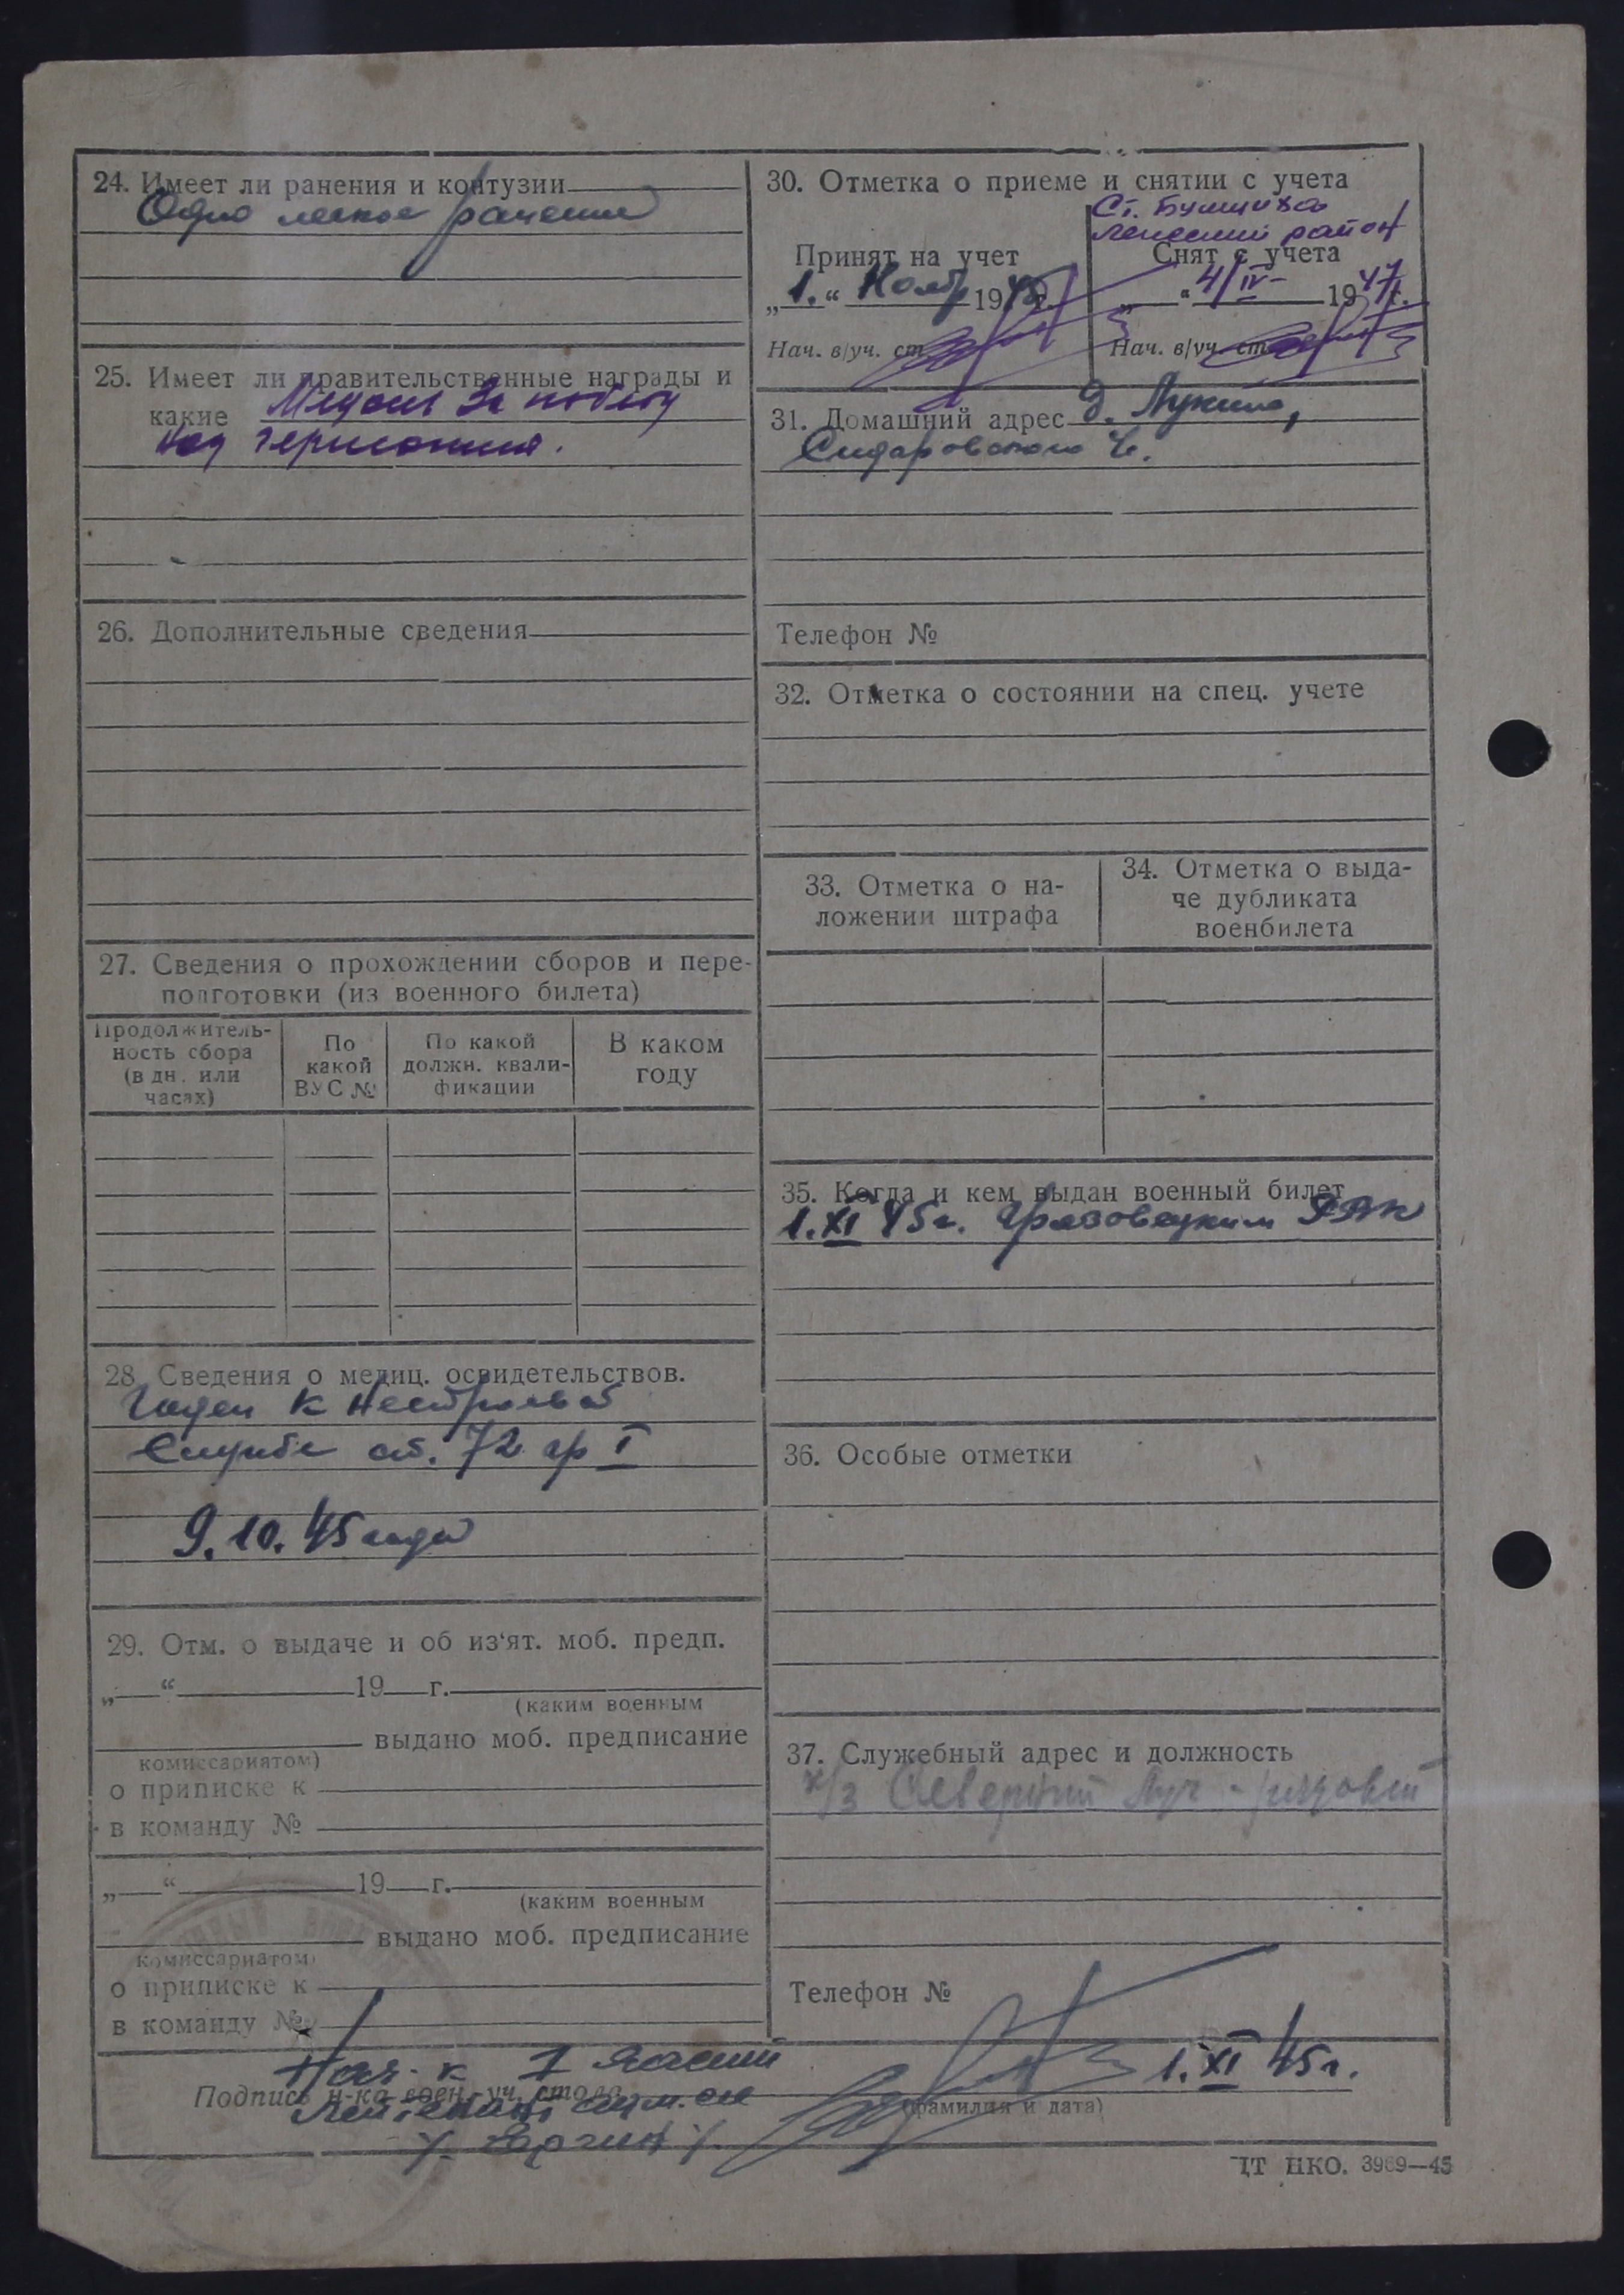 24. Имеет ли ранения и контузии
Одно легкое ранение
25. Имеет ли правительственные награды и
какие Медаль За победу
над германией.
26. Дополнительные сведения
27. Сведения о прохождении сборов и пере-
подготовки (из военного билета)
Продолжитель-
ность сбора
(в дн. или
часах)
По
какой
ВУС №
По какой
должн. квали-
фикации
В каком
году
28. Сведения о медиц. освидетельствов.
Годен к нестроевой
службе ст. 72 гр I
9.10.45 года
29. Отм. о выдаче и об из‘ят. моб. предп.
„ “ 19 г.
(каким военным
выдано моб. предписание
комиссариатом)
о приписке к
в команду №
„ “ 19 г.
(каким военным
выдано моб. предписание
комиссариатом)
о приписке к
в команду №
30. Отметка о приеме и снятии с учета
Ст.
район
Принят на учет
„1.“ Нояб 1945 г.
Нач. в/уч. ст.
Снят с учета
„ “ 4/IV- 1947 г.
Нач. в/уч. ст.
31. Домашний адрес д. Лукино,
Сидоровского
Телефон №
32. Отметка о состоянии на спец. учете
33. Отметка о на-
ложении штрафа
34. Отметка о выда-
че дубликата
военбилета
35. Когда и кем выдан военный билет
1.XI 45г. Грязовецким РВК
36. Особые отметки
37. Служебный адрес и должность
к/з Северный Луч - рядовой
Телефон №
Нач-к 1 части
Подпись н-ка воен.-уч. стола
лейтенант
(фамилия и дата)
1.XI 45г.
ЦТ НКО. 3969—45